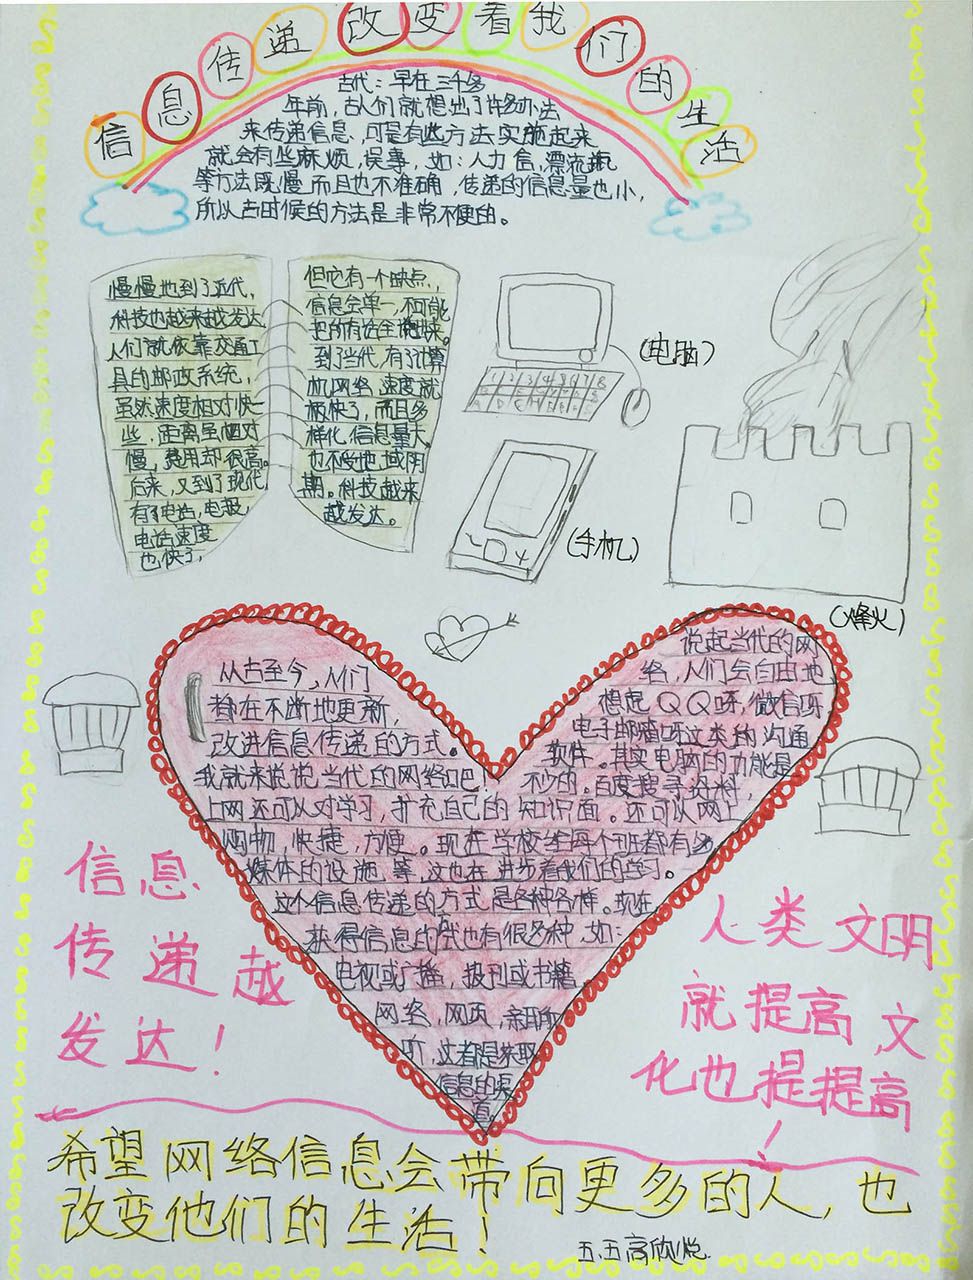 信息传递改变着我们的生活
古代：早在三千多
年前，古人们就想出了许多办法
来传递信息、可是有些方法实施起来
就会有些麻烦，误事，如：人力信，漂流瓶
等方法既慢而且也不准确，传递的信息量也小，
所以古时候的方法是非常不便的。
慢慢地到了近代，
科技也越来越发达
人们就依靠交通工
具的邮政系统，
虽然速度相对快一
些，距离虽相对
慢，费用却很高。
后来，又到了现代，
有了电话，电报，
电话速度
也快了，
但它有一个缺点，
信息会单一，不可能
把所有话全说出来。
到了当代，有了计算
机网络，速度就
极快了，而且多
样化，信息量大。
也不受地域
期。科技越来
越发达。
(电脑)
(手机)
(烽火)
从古至今，人们
都在不断地更新，
改进信息传递的方式。
我就来说说当代的网络吧！
上网还可以对学习，扩充自己的知识面。
购物，快捷，方便。现在学校
媒体的设施等，这也在进步着我们的学习。
这个信息传递的方式是各种各样。现在，
获得信息的 也有很各种，如：
电视或广播，报刊或书籍，
网络，网页，亲耳所
听，这都是获取
信息的渠
道。
说起当代的网
络，人们会自由地
想起QQ呀，微信呀
电子邮箱呀这类的沟通
软件。其实电脑的功能是
不少的。百度搜寻资料，
还可以网上
每个班都有多
信息
传递越
发达！
人类文明
就提高，文
化也提提高
！
希望网络信息会带向更多的人，也
改变他们的生活！
五.五高欣悦